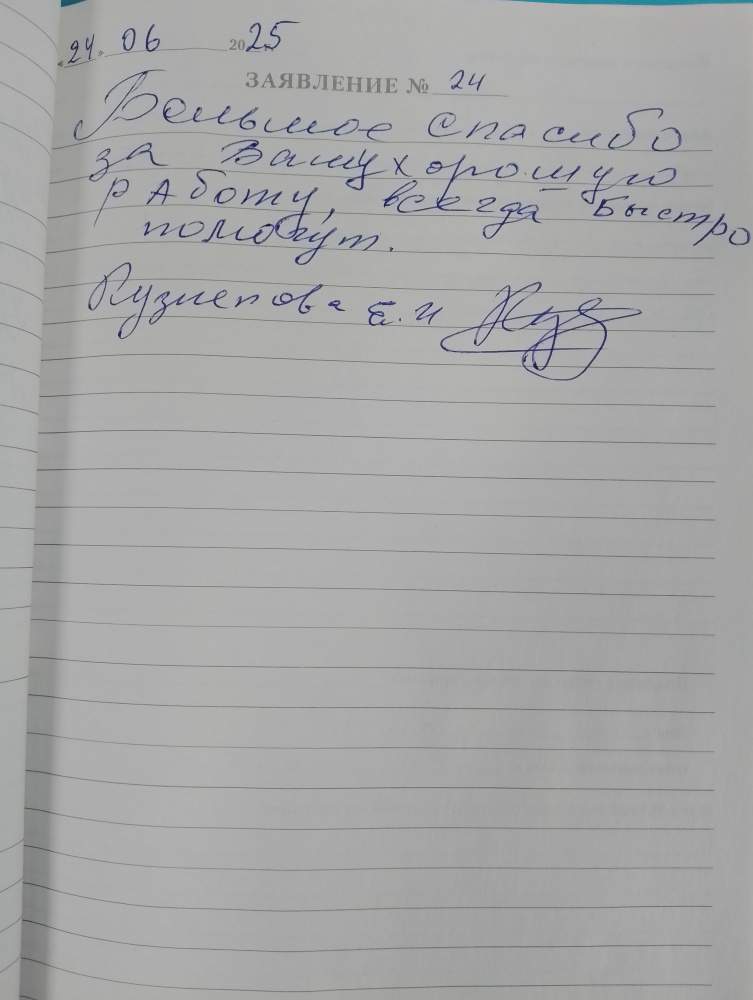 «24» 06 2025
ЗАЯВЛЕНИЕ № 24
Большое спасибо
за Вашу хорошую
работу, всегда быстро
помогут.
Кузнецова Е.И